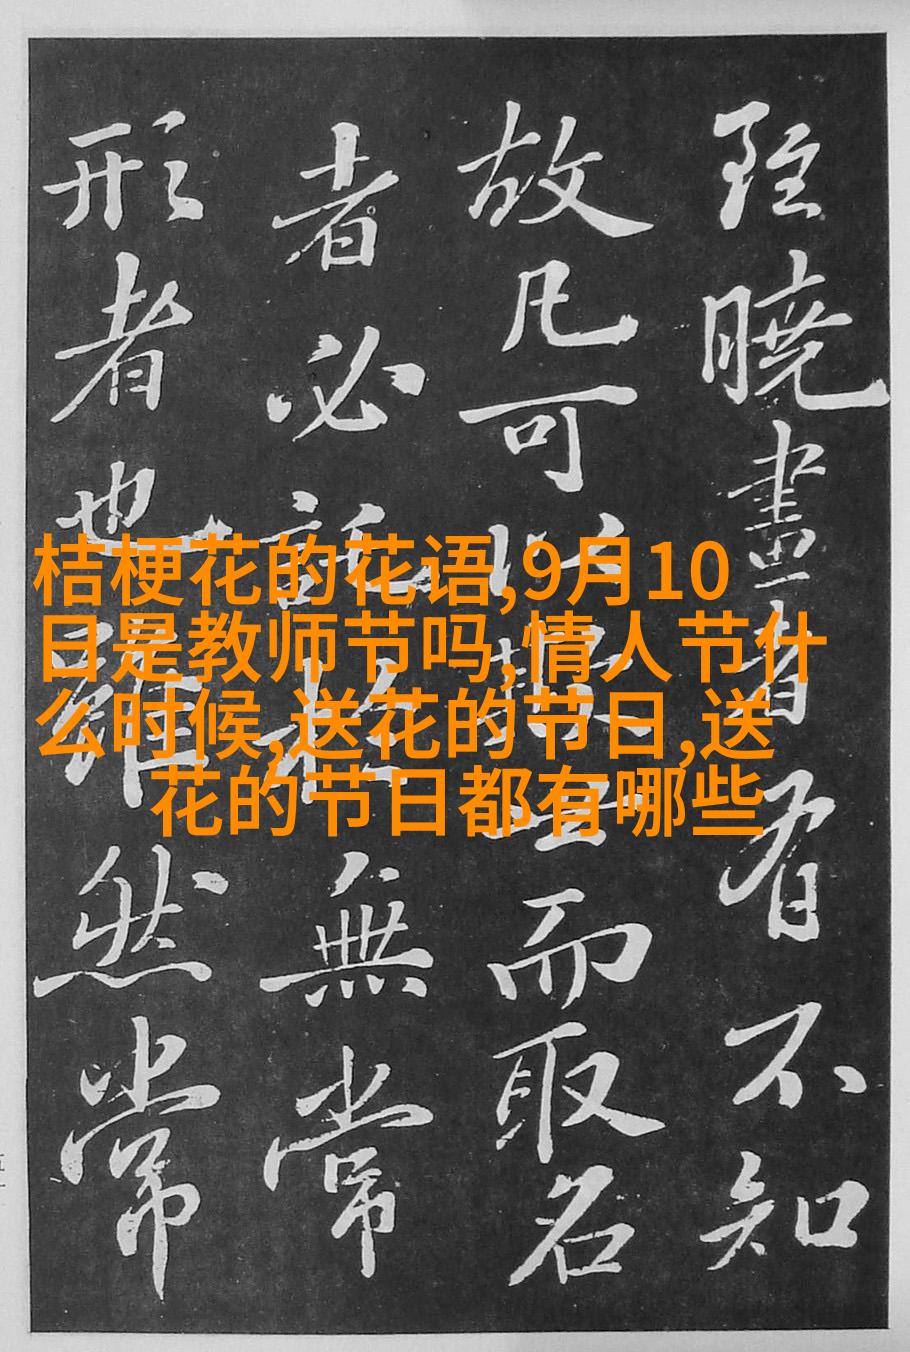 雖曉畫者有不知
故凡可以欺世而取名
者必託於無常
形者也雖然常
桔梗花的花语,9月10
日是教师节吗,情人节什
么时候,送花的节日,送
花的节日都有哪些